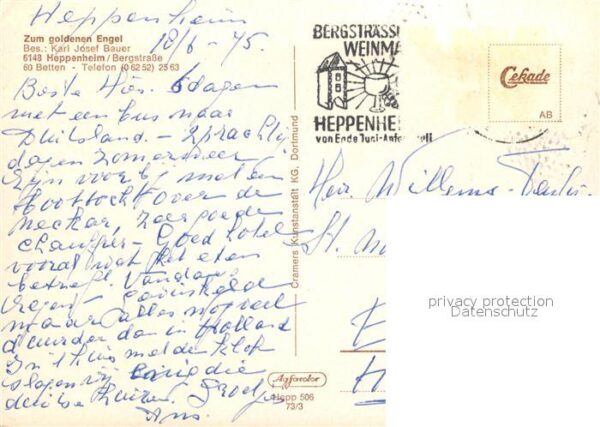 Heppenheim
18/6 - 75.
Zum goldenen Engel
Bes.: Karl Josef Bauer
6148 Heppenheim/Bergstraße
60 Betten - Telefon (0 62 52) 25 63
Beste 6 dagen
met een bus naar
Duitsland. - 2 prachtig
dagen zomerweer
zijn voorbij met een
Boottocht over de
Neckar, zeer goede
chauffeur - Goed hotel
vooral wat het eten
betreft. Vandaag
regen -
maar alles nog veel
duurder dan in Holland
In 't huis
slagen wij die
Groetjes
Ans.
Cramers Kunstanstalt KG, Dortmund
BERGSTRÄSS
WEINMA
HEPPENHEI
von Ende Juni-Anfang Juli
Cekade
AB
Her Willems-
St.
privacy protection
Datenschutz
Agfacolor
Hepp 506
73/3